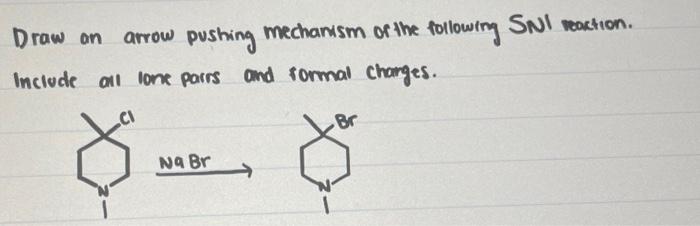 Draw an arrow pushing mechanism of the following SN1 reaction.
Include all lone pairs and formal charges.
Cl
Br
NaBr
N
N